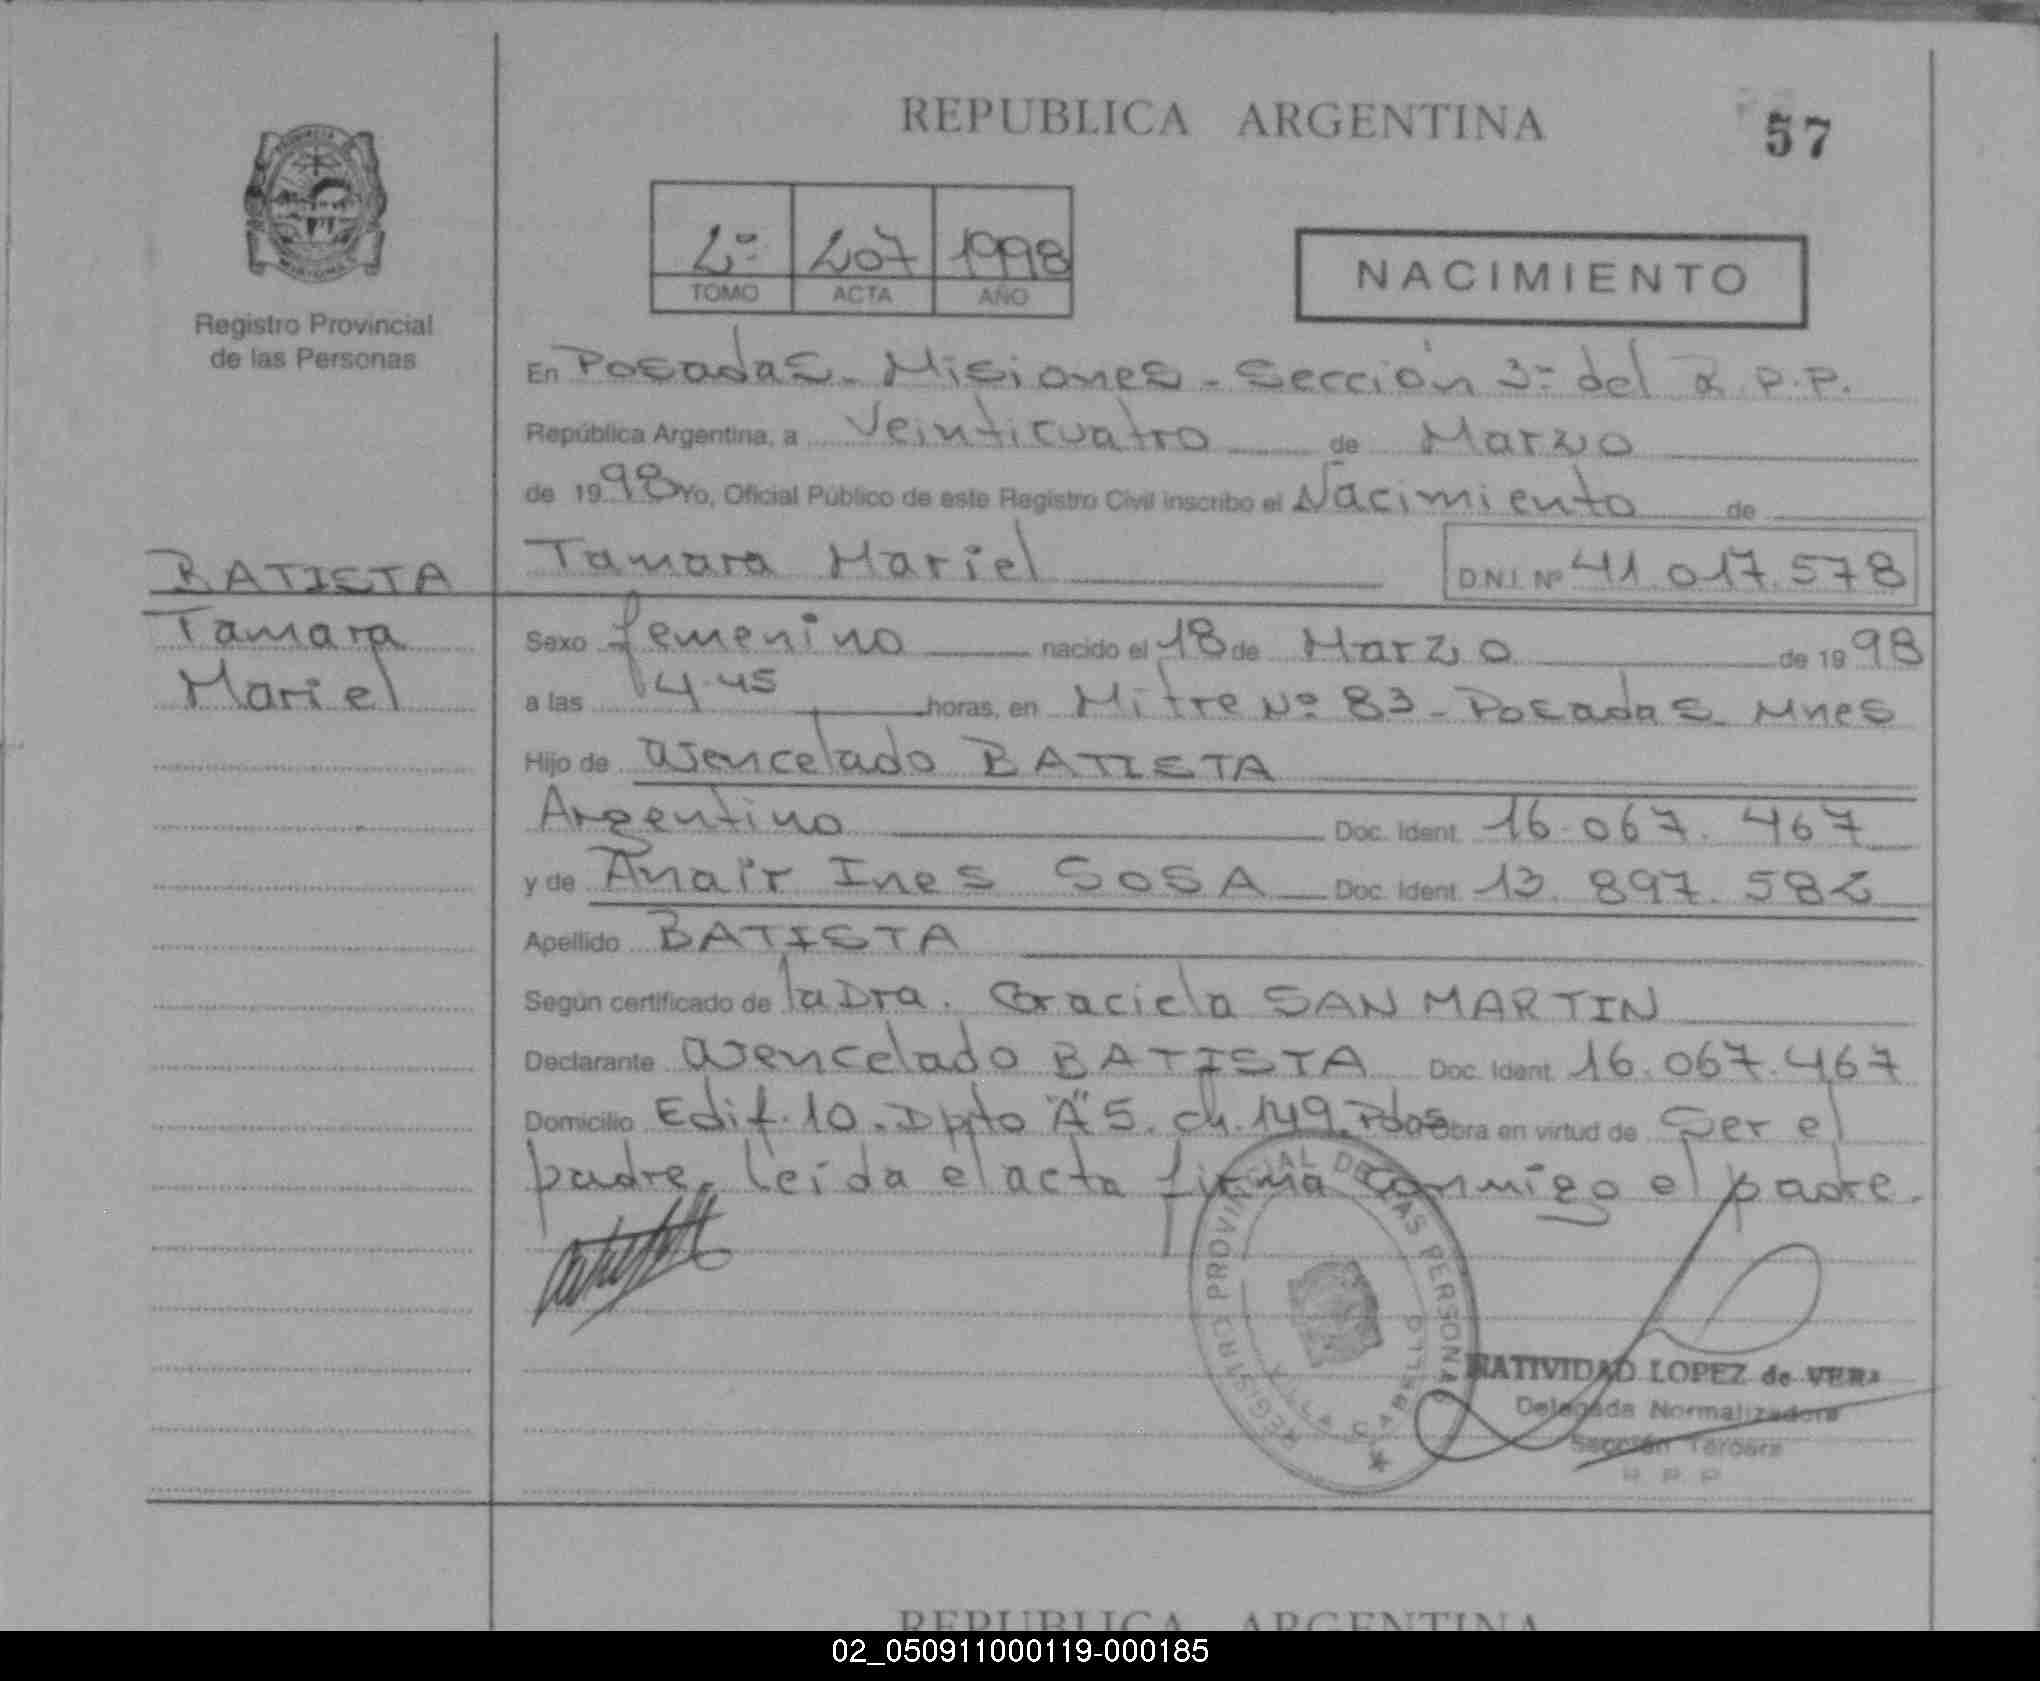 REPUBLICA ARGENTINA
57
2º 207 1998
TOMO ACTA AÑO
NACIMIENTO
Registro Provincial
de las Personas
En Posadas - Misiones - Sección 3º del R.P.P.
República Argentina, a Veinticuatro de Marzo
de 1998 Yo, Oficial Público de este Registro Civil inscribo el Nacimiento de
BATISTA
Tamara Mariel D.N.I. Nº 41.017.578
Tamara
Mariel
Sexo femenino nacido el 18 de Marzo de 1998
a las 14.45 horas, en Mitre Nº 83 - Posadas - Mnes
Hijo de Wencelado BATISTA
Argentino Doc. Ident. 16.067.467
y de Anair Ines SOSA Doc. Ident. 13.897.582
Apellido BATISTA
Según certificado de la Dra. Graciela SAN MARTIN
Declarante Wencelado BATISTA Doc. Ident. 16.067.467
Domicilio Edif. 10 - Dpto "A" 5. ch. 149. Pdas Obra en virtud de ser el
padre. leída el acta firma conmigo el padre.
REGISTRO PROVINCIAL DE LAS PERSONAS
VILLA CABELLO
NATIVIDAD LOPEZ de VERA
Delegada Normalizadora
Sección Tercera
R P P
REPUBLICA ARGENTINA
02_050911000119-000185